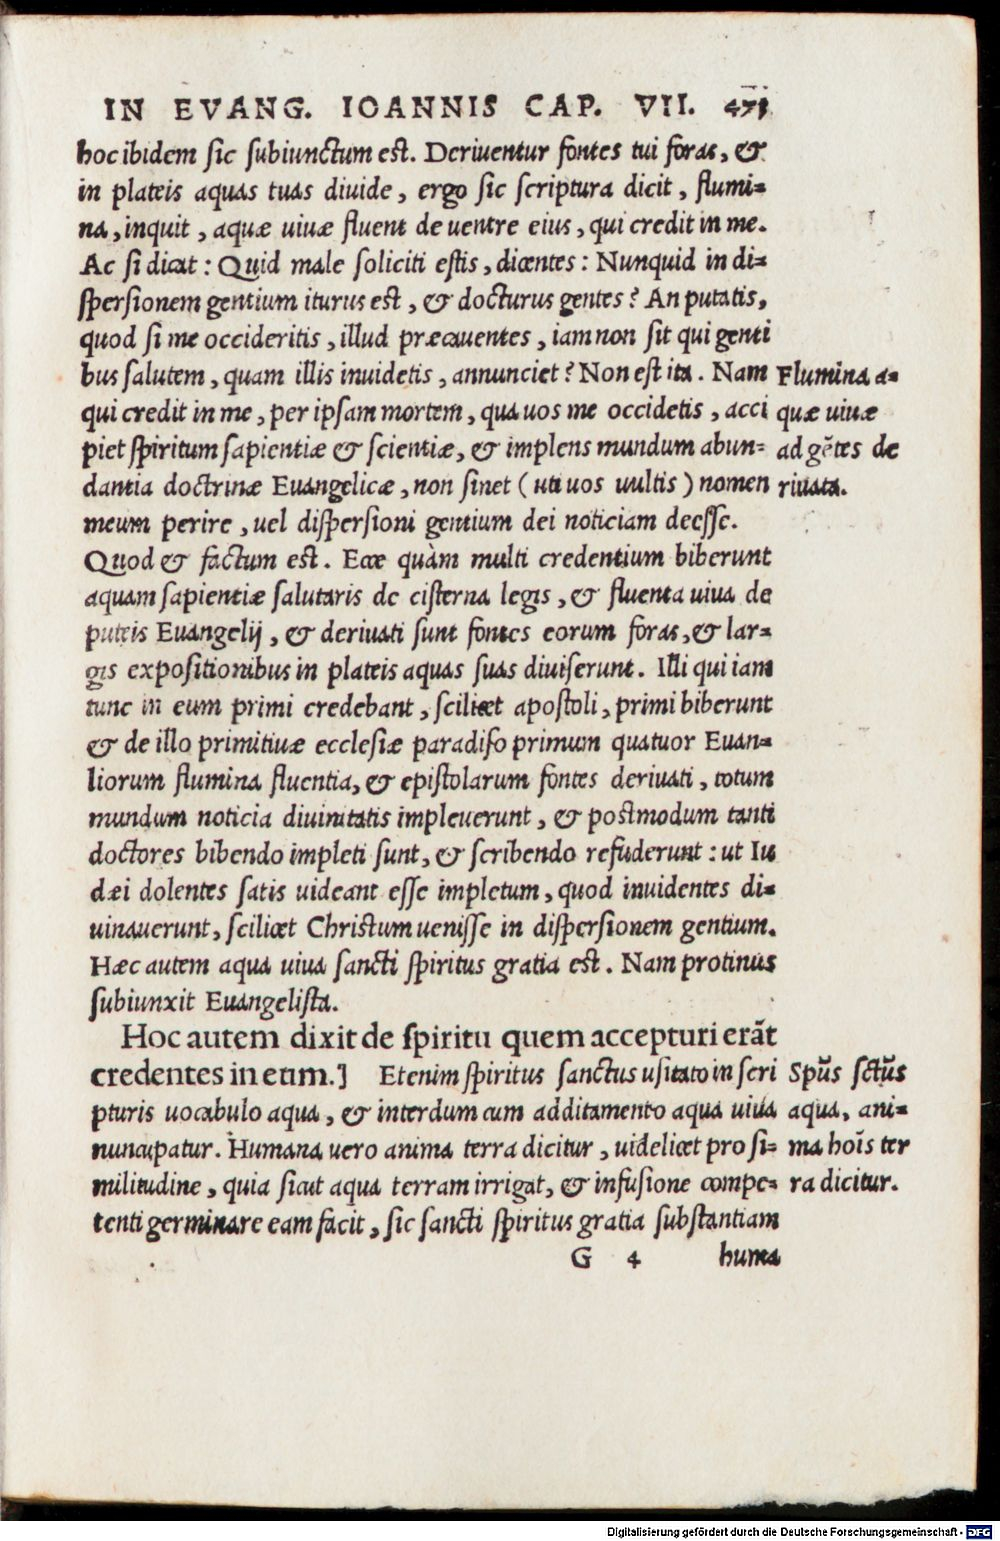 IN EVANG. IOANNIS CAP. VII. 471
hoc ibidem sic subiunctum est. Deriuentur fontes tui foras, &
in plateis aquas tuas diuide, ergo sic scriptura dicit, flumi=
na, inquit, aquæ uiuæ fluent de uentre eius, qui credit in me.
Ac si dicat: Quid male soliciti estis, dicentes: Nunquid in di=
spersionem gentium iturus est, & docturus gentes? An putatis,
quod si me occideritis, illud præcauentes, iam non sit qui genti
bus salutem, quam illis inuidetis, annunciet? Non est ita. Nam
qui credit in me, per ipsam mortem, qua uos me occidetis, acci
piet spiritum sapientiæ & scientiæ, & implens mundum abun=
dantia doctrinæ Euangelicæ, non sinet (uti uos uultis) nomen
meum perire, uel dispersioni gentium dei noticiam deesse.
Quod & factum est. Ecce quàm multi credentium biberunt
aquam sapientiæ salutaris de cisterna legis, & fluenta uiua de
puteis Euangelij, & deriuati sunt fontes eorum foras, & lar=
gis expositionibus in plateis aquas suas diuiserunt. Illi qui iam
tunc in eum primi credebant, scilicet apostoli, primi biberunt
& de illo primitiuæ ecclesiæ paradiso primum quatuor Euan=
liorum flumina fluentia, & epistolarum fontes deriuati, totum
mundum noticia diuinitatis impleuerunt, & postmodum tanti
doctores bibendo impleti sunt, & scribendo refuderunt: ut Iu
dæi dolentes satis uideant esse impletum, quod inuidentes di=
uinauerunt, scilicet Christum uenisse in dispersionem gentium.
Hæc autem aqua uiua sancti spiritus gratia est. Nam protinus
subiunxit Euangelista.
Hoc autem dixit de spiritu quem accepturi erāt
credentes in eum.] Etenim spiritus sanctus usitato in scri
pturis uocabulo aqua, & interdum cum additamento aqua uiua
nuncupatur. Humana uero anima terra dicitur, uidelicet pro si=
militudine, quia sicut aqua terram irrigat, & infusione compe=
tenti germinare eam facit, sic sancti spiritus gratia substantiam
G 4 huma
Flumina a=
quæ uiuæ
ad gētes de
riuata.
Spūs sctūs
aqua, ani=
ma hoīs ter
ra dicitur.
Digitalisierung gefördert durch die Deutsche Forschungsgemeinschaft - DFG